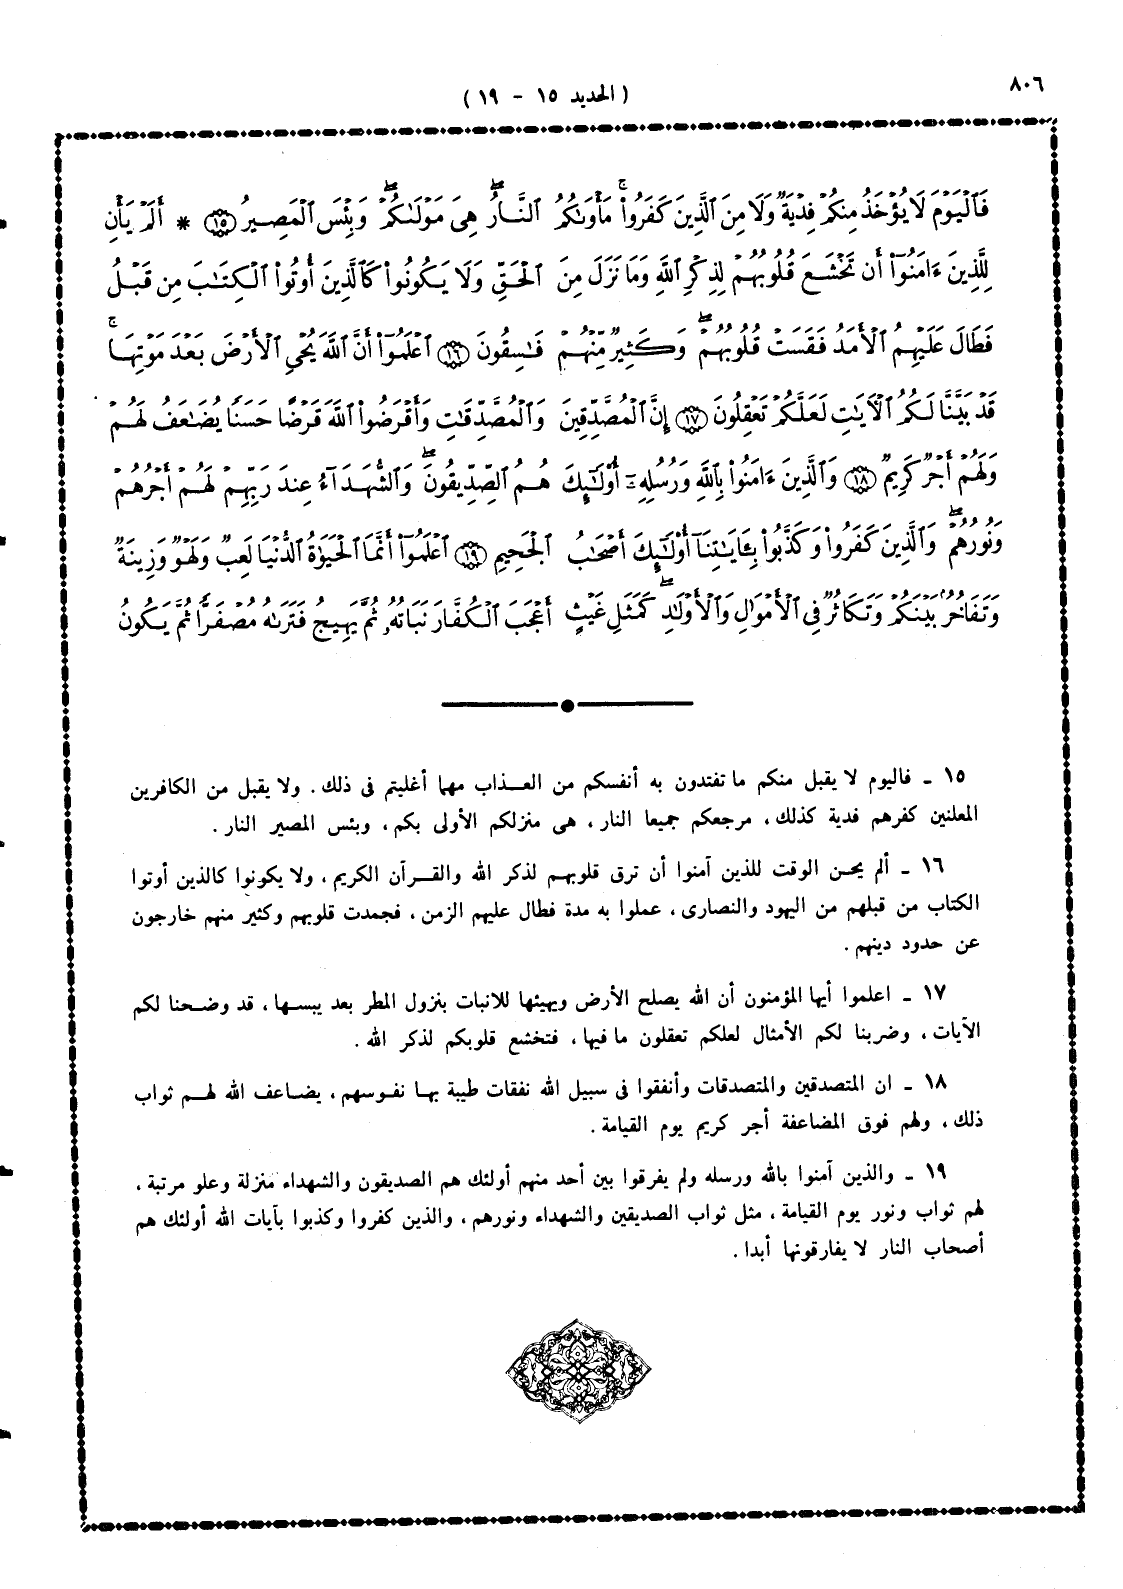 ٨٠٦
( الحديد ١٥ – ١٩ )
فَٱلْيَوْمَ لَا يُؤْخَذُ مِنكُمْ فِدْيَةٌ وَلَا مِنَ ٱلَّذِينَ كَفَرُوا۟ ۚ مَأْوَىٰكُمُ ٱلنَّارُ ۖ هِىَ مَوْلَىٰكُمْ ۖ وَبِئْسَ ٱلْمَصِيرُ ١٥ * أَلَمْ يَأْنِ
لِلَّذِينَ ءَامَنُوٓا۟ أَن تَخْشَعَ قُلُوبُهُمْ لِذِكْرِ ٱللَّهِ وَمَا نَزَلَ مِنَ ٱلْحَقِّ وَلَا يَكُونُوا۟ كَٱلَّذِينَ أُوتُوا۟ ٱلْكِتَٰبَ مِن قَبْلُ
فَطَالَ عَلَيْهِمُ ٱلْأَمَدُ فَقَسَتْ قُلُوبُهُمْ ۖ وَكَثِيرٌ مِّنْهُمْ فَٰسِقُونَ ١٦ ٱعْلَمُوٓا۟ أَنَّ ٱللَّهَ يُحْىِ ٱلْأَرْضَ بَعْدَ مَوْتِهَا ۚ
قَدْ بَيَّنَّا لَكُمُ ٱلْأَيَٰتِ لَعَلَّكُمْ تَعْقِلُونَ ١٧ إِنَّ ٱلْمُصَّدِّقِينَ وَٱلْمُصَّدِّقَٰتِ وَأَقْرَضُوا۟ ٱللَّهَ قَرْضًا حَسَنًا يُضَٰعَفُ لَهُمْ
وَلَهُمْ أَجْرٌ كَرِيمٌ ١٨ وَٱلَّذِينَ ءَامَنُوا۟ بِٱللَّهِ وَرُسُلِهِۦٓ أُو۟لَٰٓئِكَ هُمُ ٱلصِّدِّيقُونَ ۖ وَٱلشُّهَدَآءُ عِندَ رَبِّهِمْ لَهُمْ أَجْرُهُمْ
وَنُورُهُمْ ۖ وَٱلَّذِينَ كَفَرُوا۟ وَكَذَّبُوا۟ بِـَٔايَٰتِنَآ أُو۟لَٰٓئِكَ أَصْحَٰبُ ٱلْجَحِيمِ ١٩ ٱعْلَمُوٓا۟ أَنَّمَا ٱلْحَيَوٰةُ ٱلدُّنْيَا لَعِبٌ وَلَهْوٌ وَزِينَةٌ
وَتَفَاخُرٌۢ بَيْنَكُمْ وَتَكَاثُرٌ فِى ٱلْأَمْوَٰلِ وَٱلْأَوْلَٰدِ ۖ كَمَثَلِ غَيْثٍ أَعْجَبَ ٱلْكُفَّارَ نَبَاتُهُۥ ثُمَّ يَهِيجُ فَتَرَىٰهُ مُصْفَرًّا ثُمَّ يَكُونُ
١٥ – فاليوم لا يقبل منكم ما تفتدون به أنفسكم من العذاب مهما أغليتم فى ذلك . ولا يقبل من الكافرين
المعلنين كفرهم فدية كذلك ، مرجعكم جميعا النار ، هى منزلكم الأولى بكم ، وبئس المصير النار .
١٦ – ألم يحن الوقت للذين آمنوا أن ترق قلوبهم لذكر الله والقرآن الكريم ، ولا يكونوا كالذين أوتوا
الكتاب من قبلهم من اليهود والنصارى ، عملوا به مدة فطال عليهم الزمن ، فجمدت قلوبهم وكثير منهم خارجون
عن حدود دينهم .
١٧ – اعلموا أيها المؤمنون أن الله يصلح الأرض ويهيئها للانبات بنزول المطر بعد يبسها ، قد وضحنا لكم
الآيات ، وضربنا لكم الأمثال لعلكم تعقلون ما فيها ، فتخشع قلوبكم لذكر الله .
١٨ – ان المتصدقين والمتصدقات وأنفقوا فى سبيل الله نفقات طيبة بها نفوسهم ، يضاعف الله لهم ثواب
ذلك ، ولهم فوق المضاعفة أجر كريم يوم القيامة .
١٩ – والذين آمنوا بالله ورسله ولم يفرقوا بين أحد منهم أولئك هم الصديقون والشهداء منزلة وعلو مرتبة ،
لهم ثواب ونور يوم القيامة ، مثل ثواب الصديقين والشهداء ونورهم ، والذين كفروا وكذبوا بآيات الله أولئك هم
أصحاب النار لا يفارقونها أبدا .